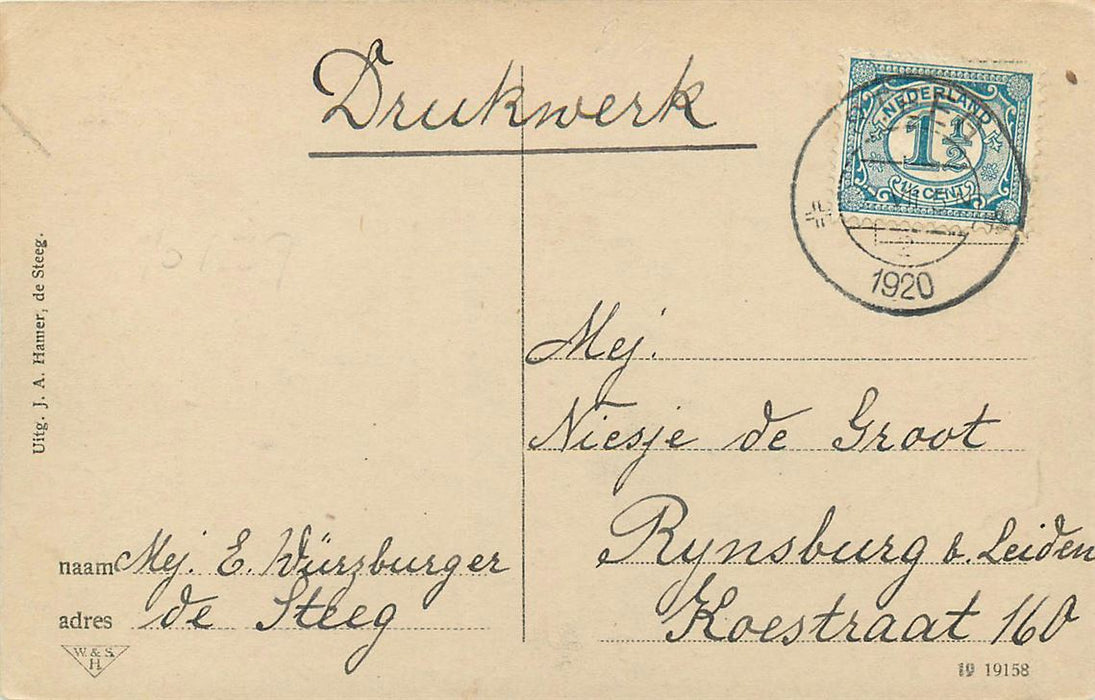 Drukwerk
NEDERLAND
1½
1½ CENT
1920
Uitg. J. A. Hamer, de Steeg.
Mej.
Niesje de Groot
Rynsburg b. Leiden
Koestraat 160
naam Mej. E. Würzburger
adres de Steeg
W. & S.
H
19 19158